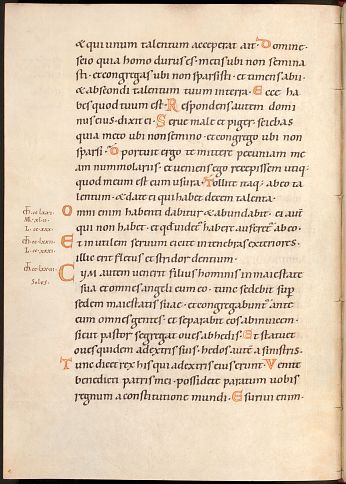 & qui unum talentum acceperat ait· Domine·
scio quia homo durus es· metis ubi non semina
sti· et congregas ubi non sparsisti· et timens abii·
& abscondi talentum tuum in terra· Ecce ha
bes quod tuum est· Respondens autem domi
nus eius· dixit ei· Serue male et piger· sciebas
quia meto ubi non semino· et congrego ubi non
sparsi· Oportuit ergo te mittere pecuniam me
am nummolariis· et ueniens ego recepissem utiq;
quod meum est cum usura· Tollite itaq; ab eo ta
lentum· & date ei qui habet decem talenta·
Omni enim habenti dabitur & abundabit· ei aut
qui non habet· et quod uidet habere auferet ab eo·
Et inutilem seruum eicite in tenebras exteriores·
illic erit fletus et stridor dentium·
Cum autem uenerit filius hominis in maiestate
sua et omnes angeli cum eo· tunc sedebit sup
sedem maiestatis suae· et congregabunt ante
eum omnes gentes· et separabit eos ab inuicem·
sicut pastor segregat oues ab hedis· Et statuet
oues quidem a dextris suis· hedos aut a sinistris·
Tunc dicet rex his qui a dextris eius erunt· Venite
benedicti patris mei· possidete paratum uobis
regnum a constitutione mundi· Esuriui enim·
Solus·